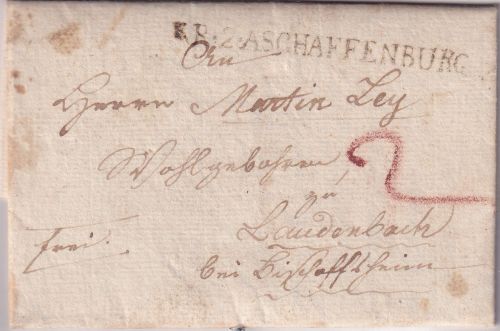 R.2.ASCHAFFENBURG
An
Herrn Martin Ley
Wohlgebohren
2
zu
Laudenbach
frei.
bei Bischofsheim